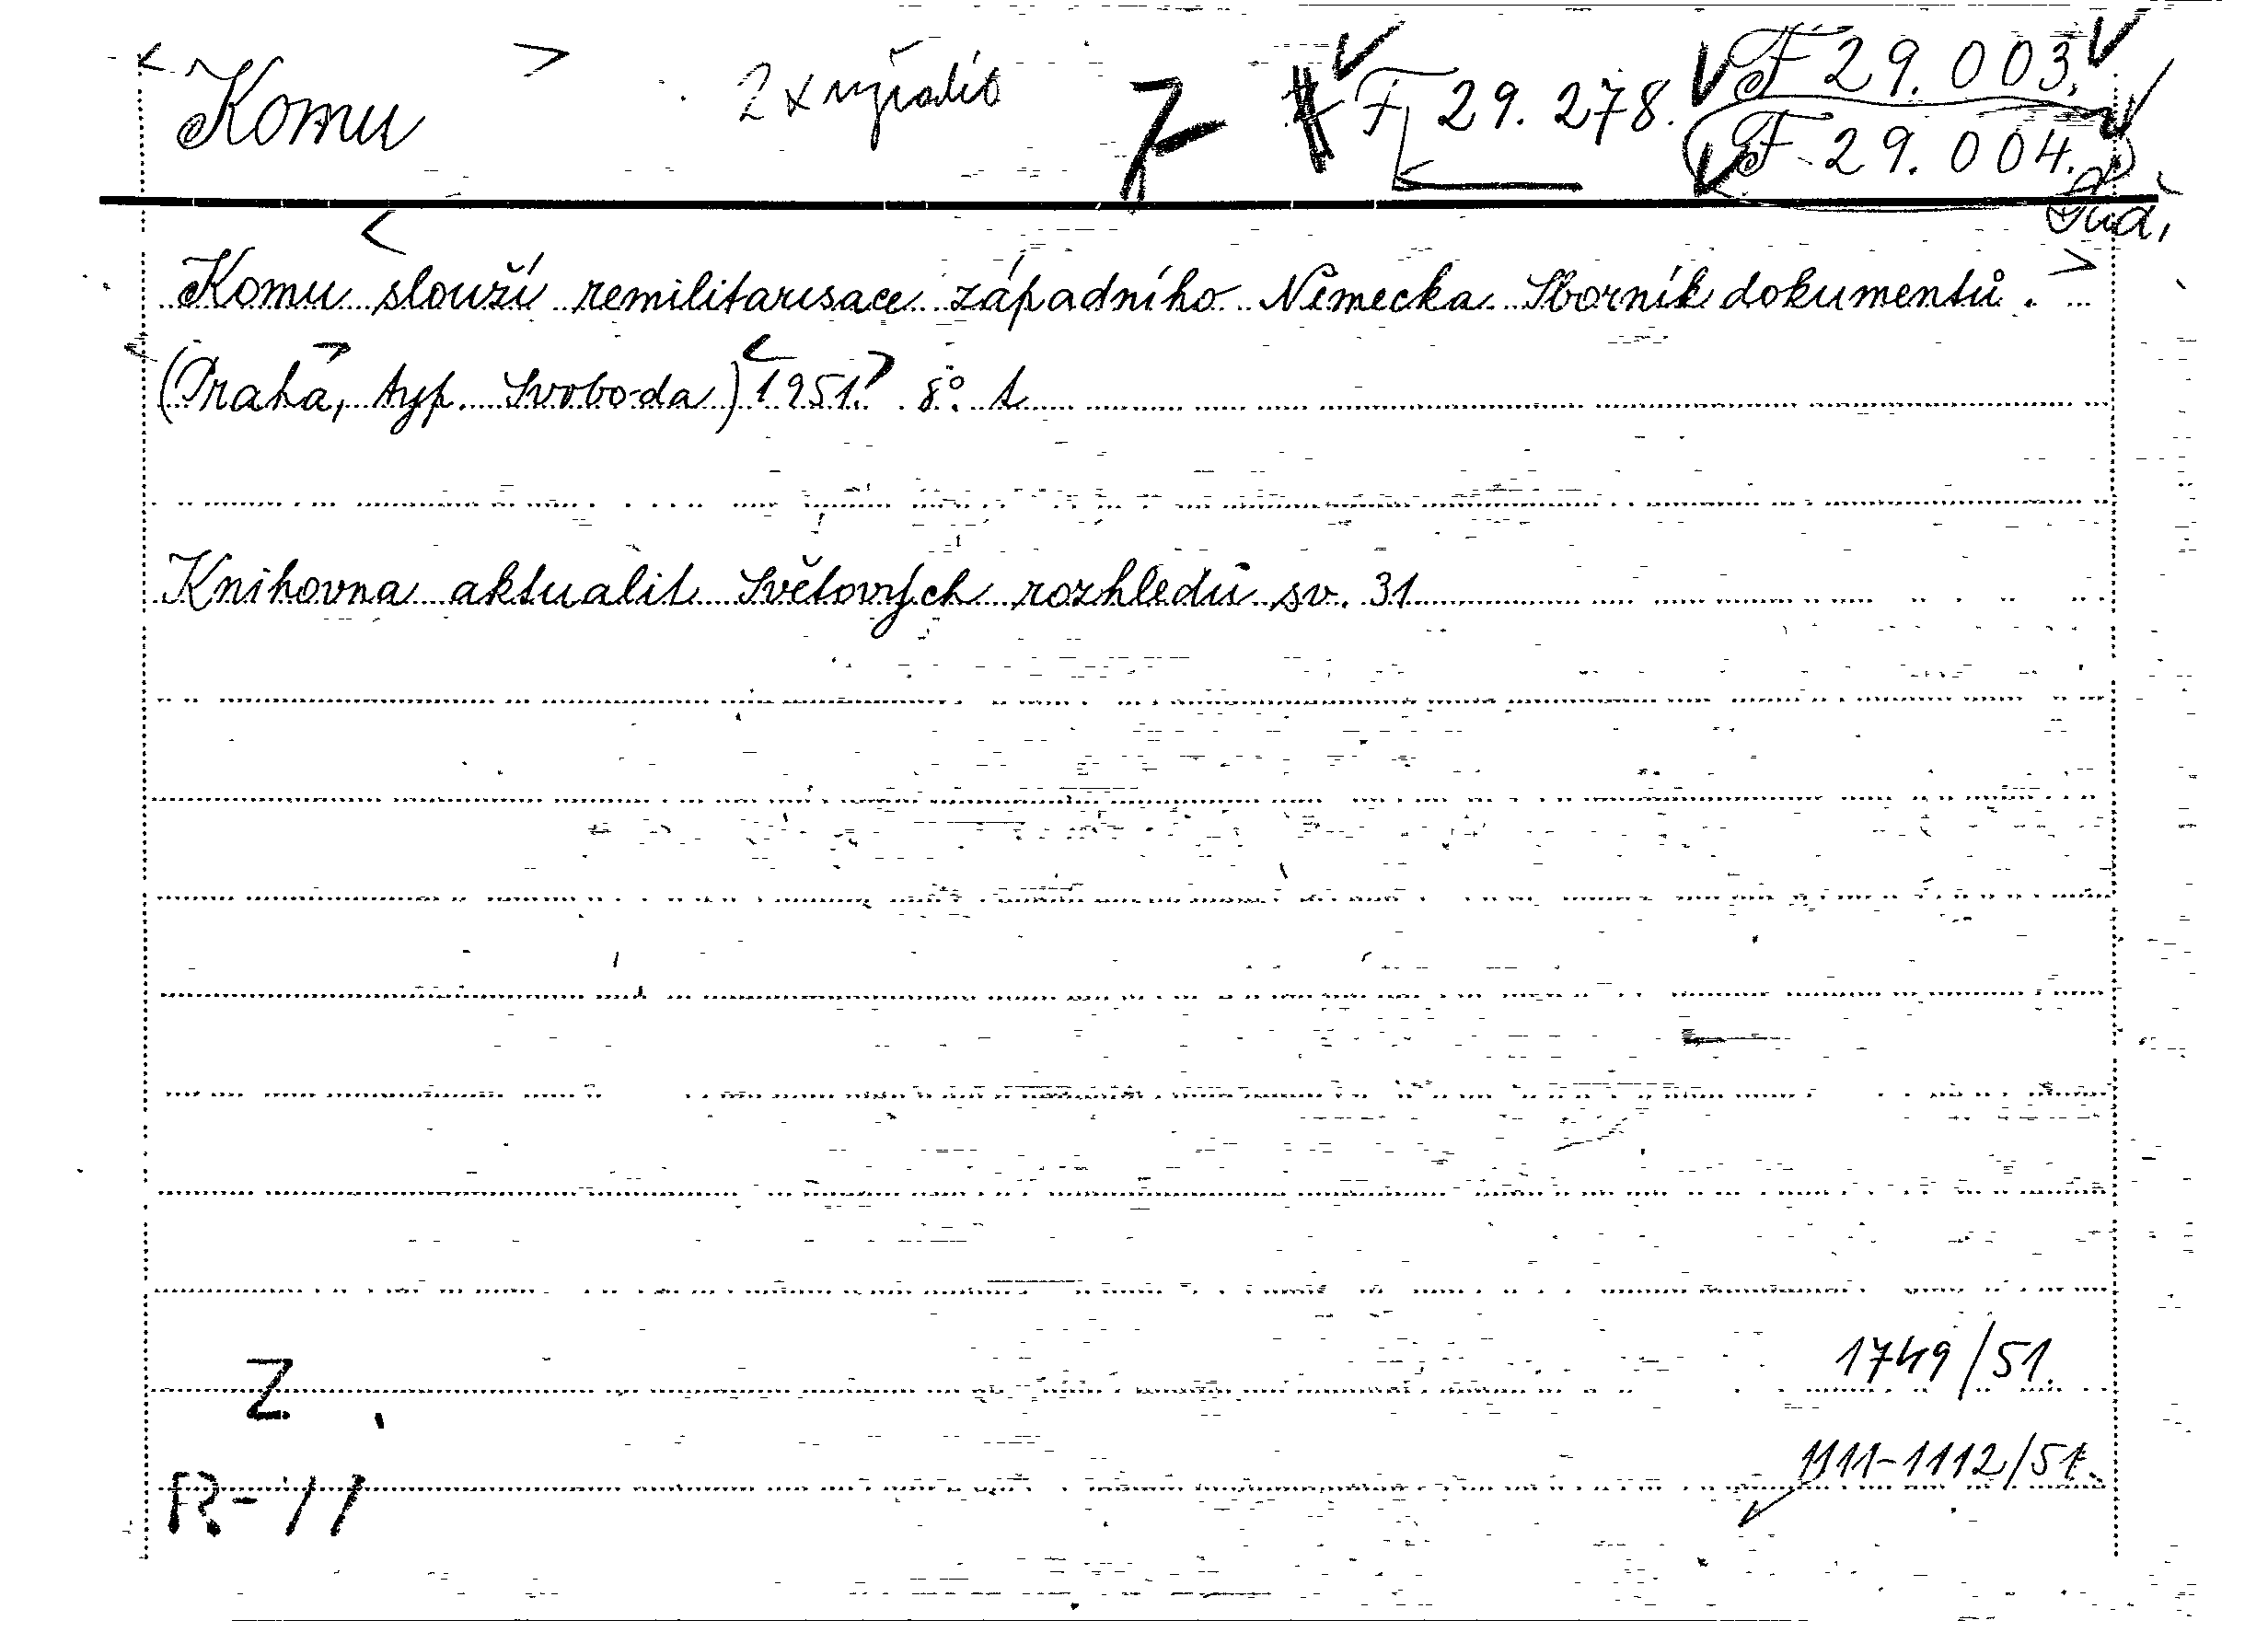 Komu 2 x vyřadit 7 F 29.278. F 29.003.
F 29.004.
Komu slouží remilitarisace západního Německa. Sborník dokumentů.
(Praha, typ. Svoboda) 1951. 8°.
Knihovna aktualit Světových rozhledů sv. 31
Z
1749/51.
1111-1112/51.
R-11